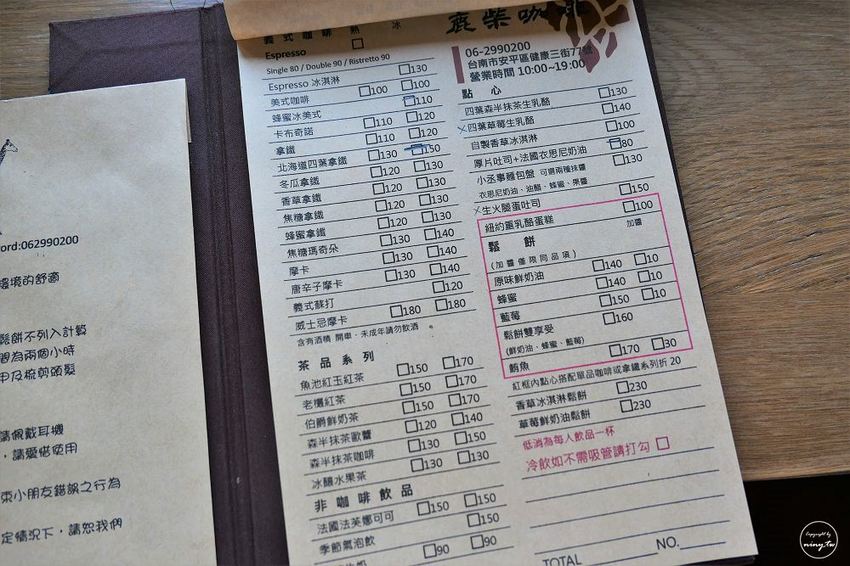 義式咖啡 熱 冰
Espresso □
Single 80 / Double 90 / Ristretto 90
Espresso 冰淇淋 □130
美式咖啡 □100 □100
蜂蜜冰美式 □110
卡布奇諾 □110 □120
拿鐵 □110 □120
北海道四葉拿鐵 □130 □150
冬瓜拿鐵 □120 □130
香草拿鐵 □120 □130
焦糖拿鐵 □120 □130
蜂蜜拿鐵 □120 □130
焦糖瑪奇朵 □130 □140
摩卡 □130 □140
唐辛子摩卡 □130 □140
義式蘇打 □120
威士忌摩卡 □180 □180
含有酒精 開車、未成年請勿飲酒
茶品系列
魚池紅玉紅茶 □150 □170
老欉紅茶 □150 □170
伯爵鮮奶茶 □150 □170
森半抹茶歐蕾 □120 □140
森半抹茶咖啡 □130 □130
冰釀水果茶 □130 □130
非咖啡飲品
法國法芙娜可可 □150 □150
季節氣泡飲 □150
□90 □90
鹿柴咖啡
06-2990200
台南市安平區健康三街77號
營業時間 10:00~19:00
點心
四葉森半抹茶生乳酪 □130
四葉草莓生乳酪 □140
自製香草冰淇淋 □100
厚片吐司+法國衣思尼奶油 □80
小丞事麵包盤 可選兩種抹醬 □130
衣思尼奶油、油醋、蜂蜜、果醬
生火腿蛋吐司 □150
紐約重乳酪蛋糕 □100
鬆餅 加醬
(加醬僅限同品項)
原味鮮奶油 □140 □10
蜂蜜 □140 □10
藍莓 □150 □10
鬆餅雙享受 □160
(鮮奶油、蜂蜜、藍莓)
鮪魚 □170 □30
紅框內點心搭配單品咖啡或拿鐵系列折 20
香草冰淇淋鬆餅 □230
草莓鮮奶油鬆餅 □230
低消為每人飲品一杯
冷飲如不需吸管請打勾 □
TOTAL NO.
ord:062990200
環境的舒適
鬆餅不列入計算
間為兩個小時
甲及梳剪頭髮
請佩戴耳機
，請愛惜使用
束小朋友錯誤之行為
定情況下，請恕我們
Copyright by
niny.tw